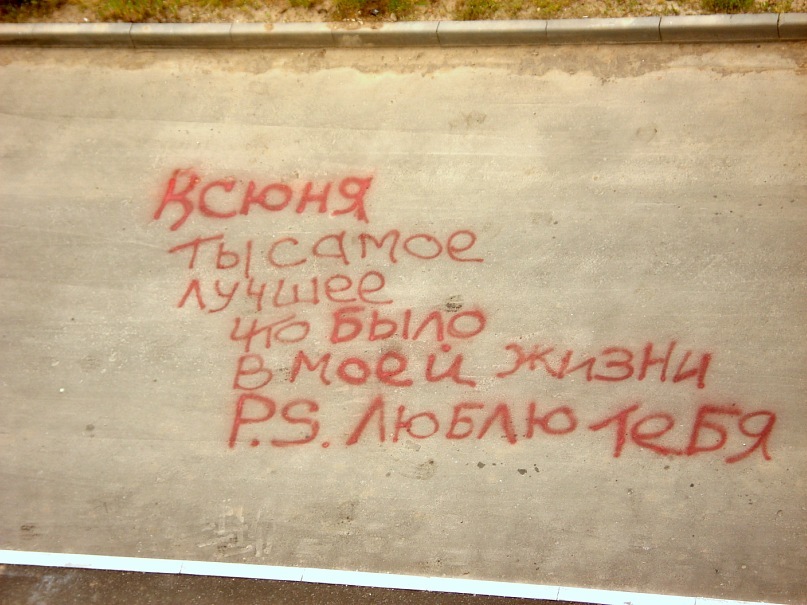 Ксюня
ты самое
лучшее
что было
в моей жизни
P.S. Люблю тебя